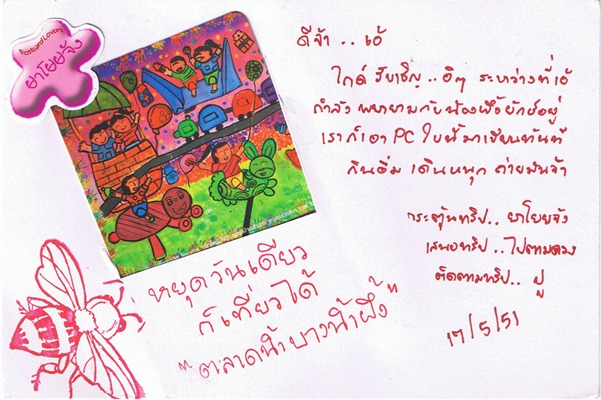 Postcard Lovers
ยาโยยจัง
ดีจ้า .. เอ้
ไกด์ รับเชิญ .. อิๆ ระหว่างที่เอ้
กำลัง พยายามกับน้องผึ้งยักษ์อยู่
เราก็เอา PC ใบนี้มาเขียนทันที
กินอิ่ม เดินหนุก ถ่ายมันจ้า
กระตุ้นทริป .. ยาโยยจัง
เสนอทริป .. ไปตามดวง
ติดตามทริป .. ปู
17/5/51
"หยุดวันเดียว
ก็เที่ยวได้
"ตลาดน้ำบางน้ำผึ้ง"